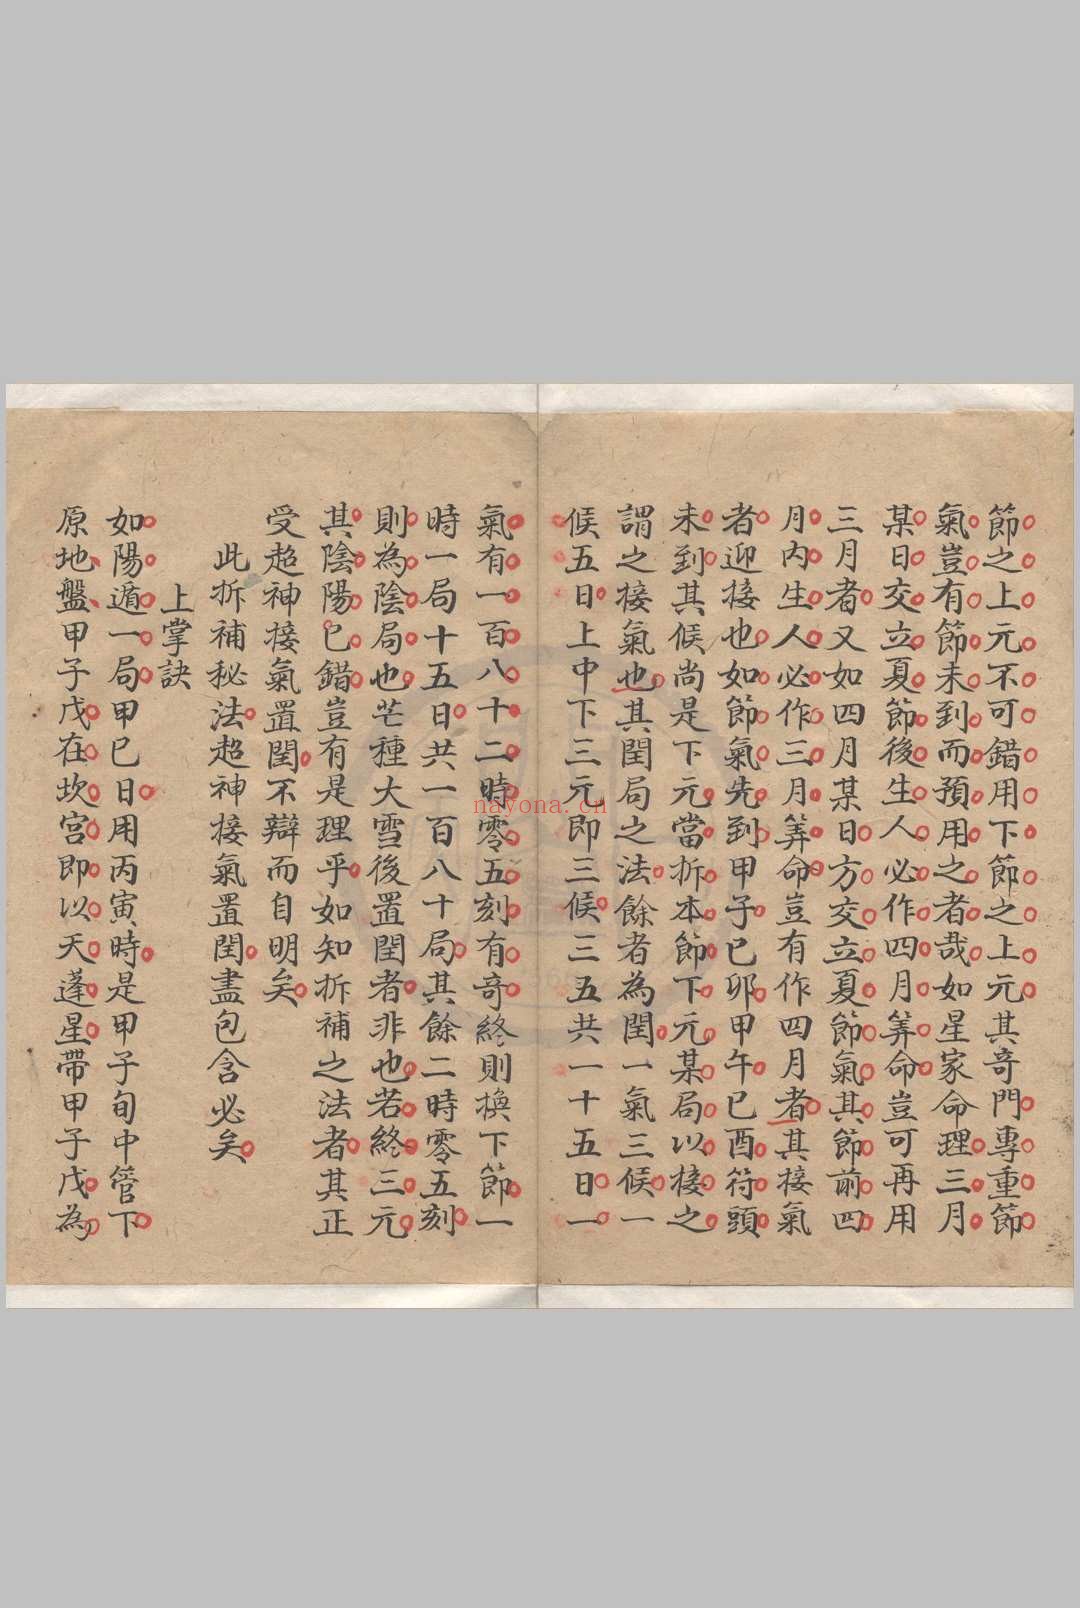 節之上元不可錯用下節之上元其奇門專重節
氣豈有節未到而預用之者哉如星家命理三月
某日交立夏節後生人必作四月筭命豈可再用
三月者又如四月某日方交立夏節氣其節前四
月內生人必作三月筭命豈有作四月者其接氣
者迎接也如節氣先到甲子已卯甲午已酉符頭
未到其候尚是下元當拆本節下元某局以接之
謂之接氣也其閏局之法餘者為閏一氣三候一
候五日上中下三元即三候三五共一十五日一
氣有一百八十二時零五刻有奇終則換下節一
時一局十五日共一百八十局其餘二時零五刻
則為陰局也芒種大雪後置閏者非也若終三元
其陰陽已錯豈有是理乎如知拆補之法者其正
受超神接氣置閏不辯而自明矣
此拆補秘法超神接氣置閏盡包含必矣
上掌訣
如陽遁一局甲已日用丙寅時是甲子旬中管下
原地盤甲子戊在坎宮即以天蓬星帶甲子戊為
nayona.cn